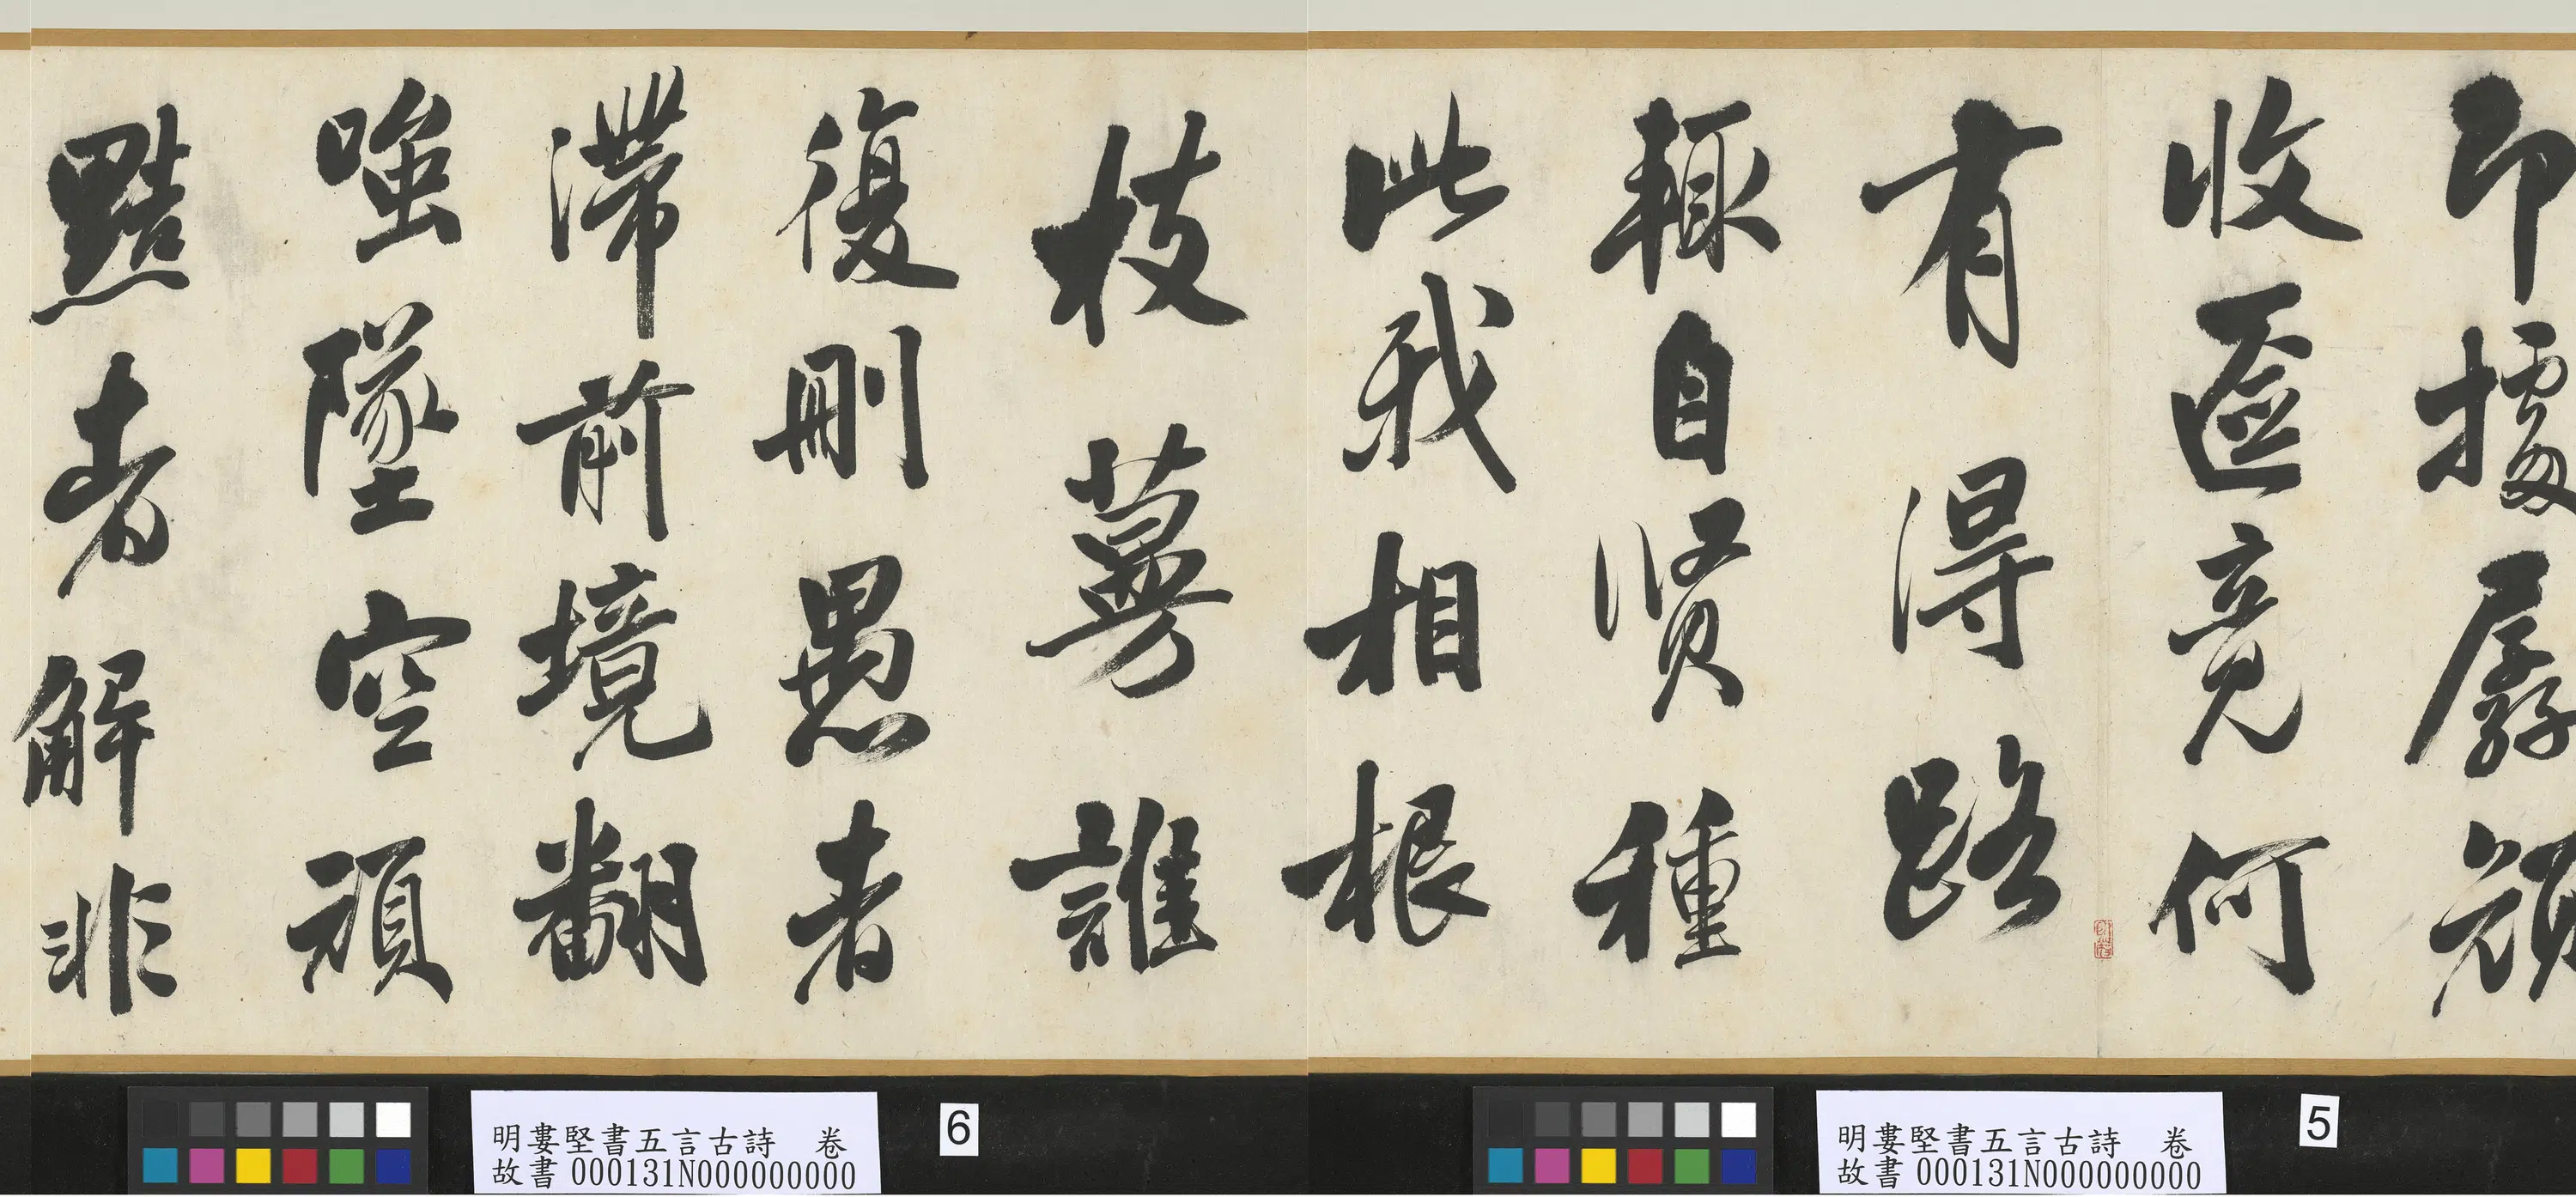 據孱
收匳竟何
有得路
輒自賢種
此我相根
枝蔓誰
復刪愚者
滯前境翻
嗤墜空頑
黠者解非
5
明婁堅書五言古詩　卷
故書 000131N000000000
6
明婁堅書五言古詩　卷
故書 000131N000000000